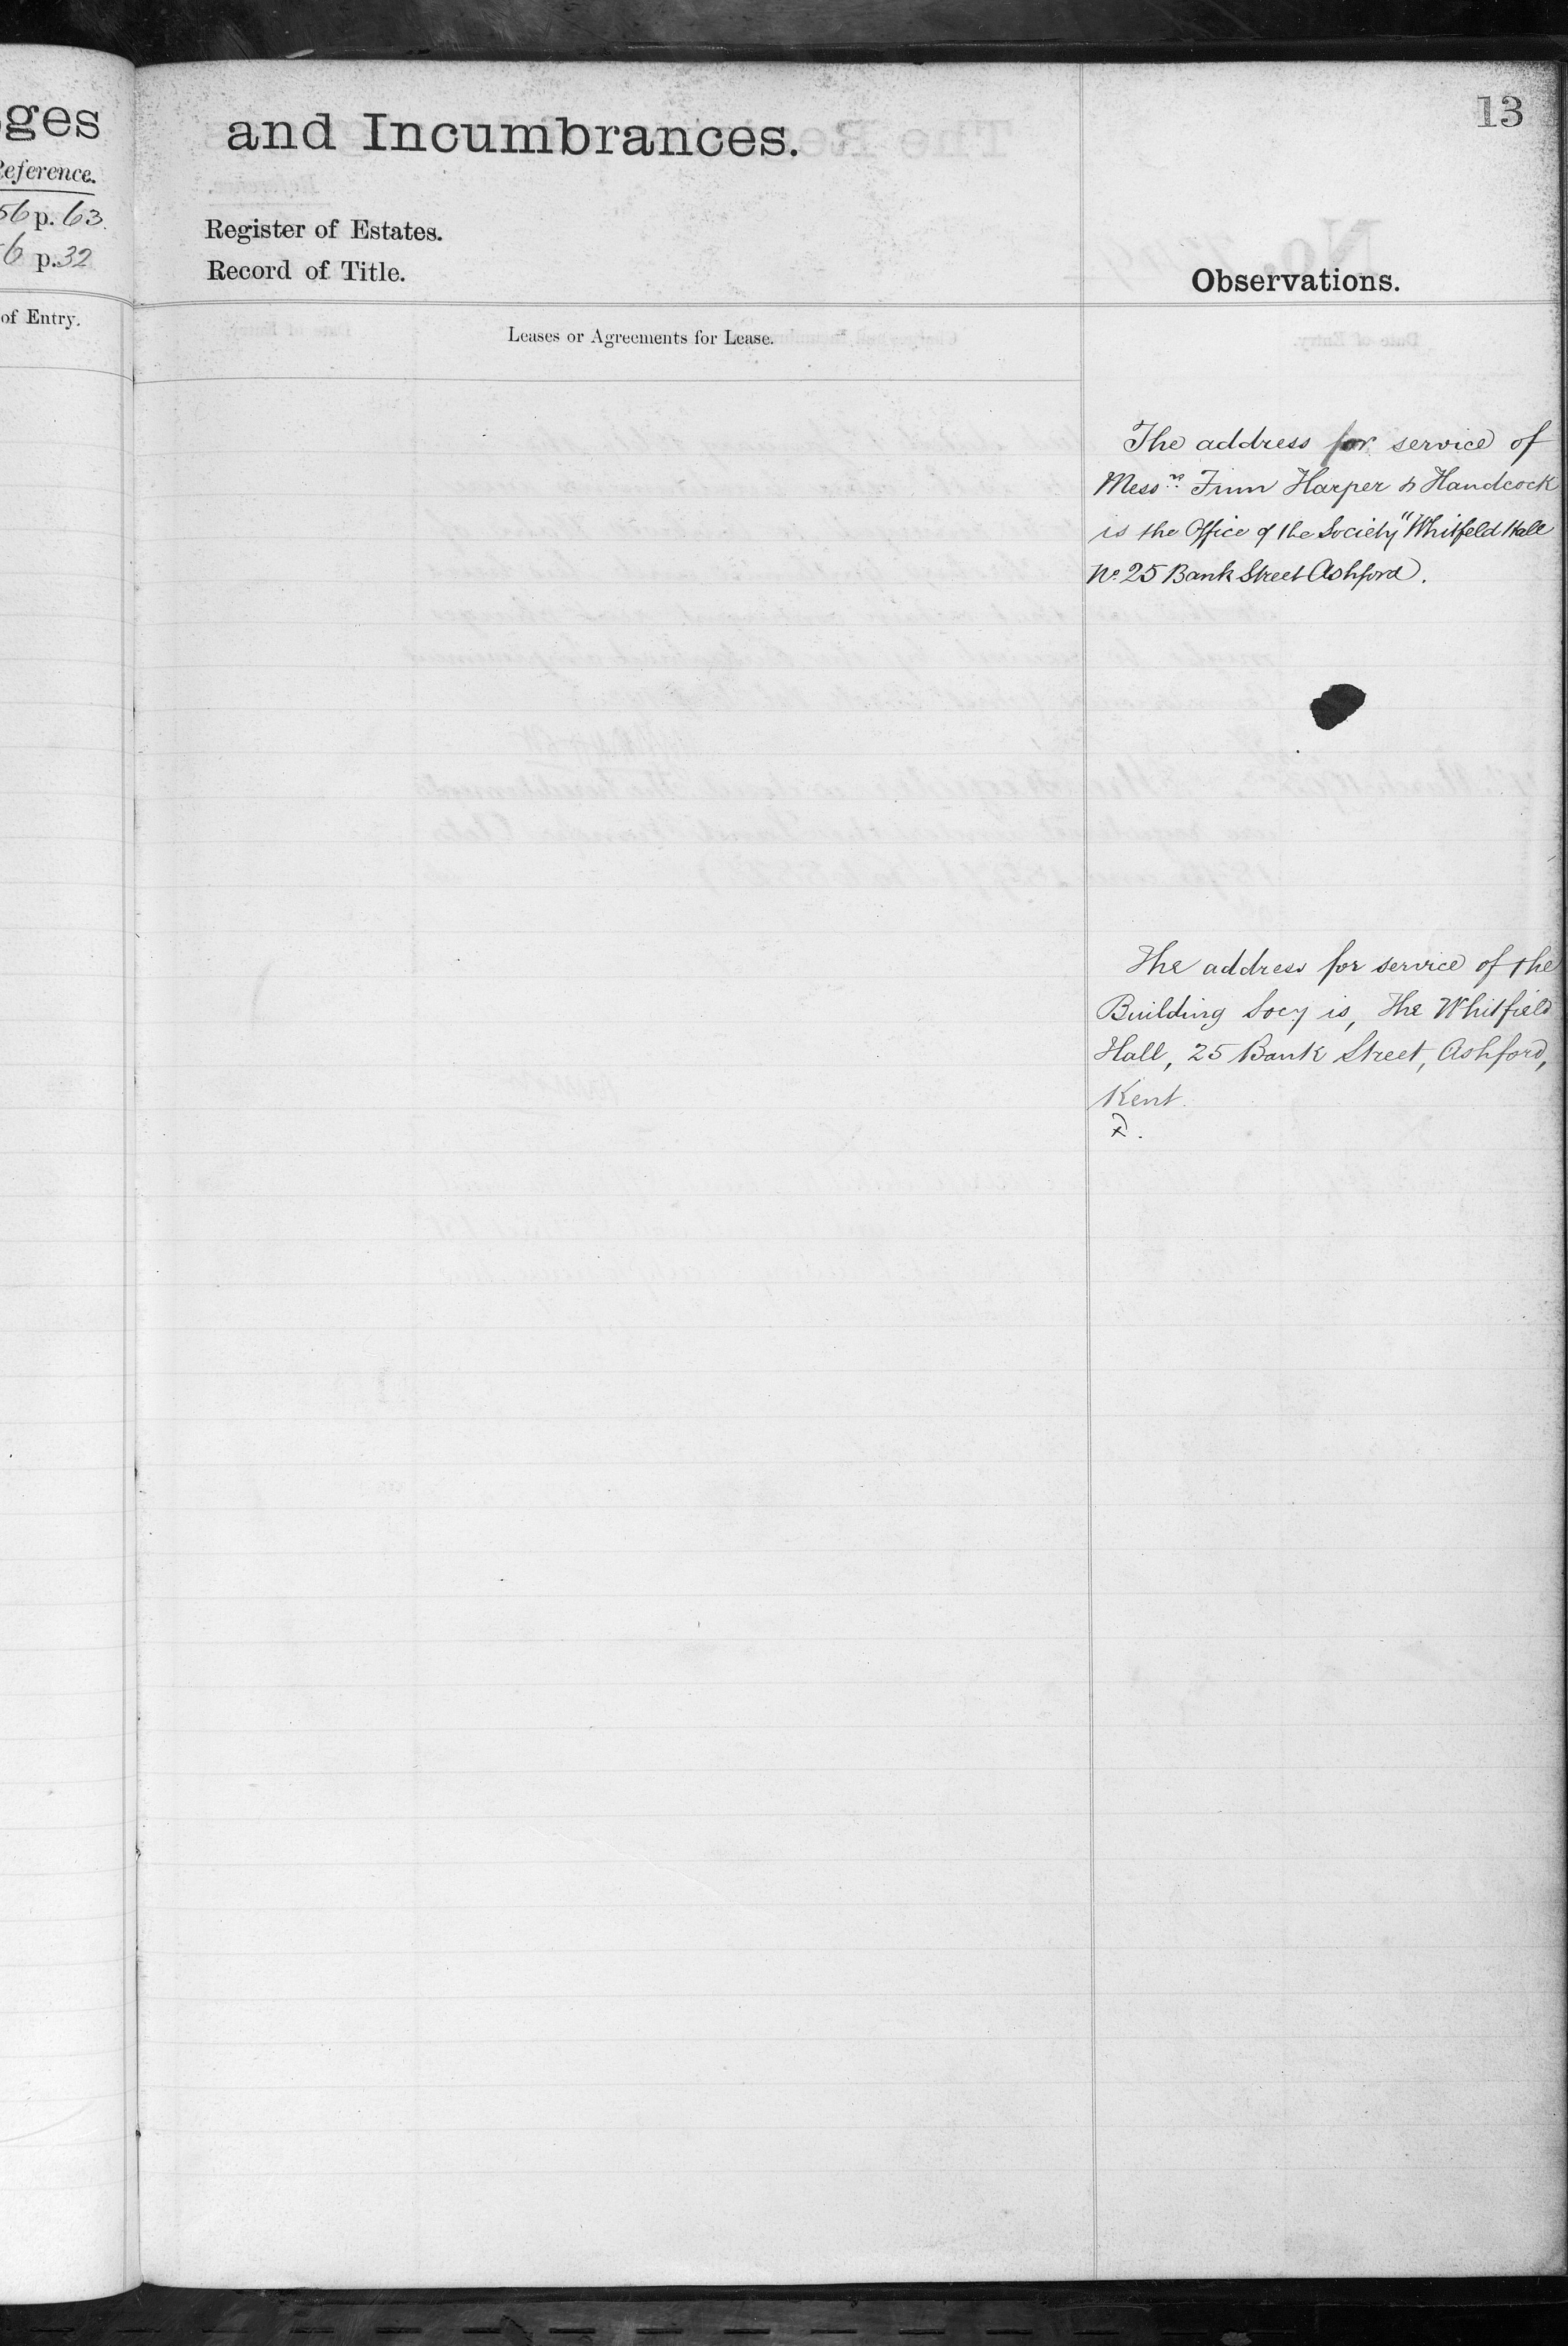 13
ges
and Incumbrances.
Reference.
56 p. 63.
6 p. 32
Register of Estates.
Record of Title.
Observations.
of Entry.
Leases or Agreements for Lease.
The address for service of
Messrs Finn Harper & Handcock
is the Office of the Society "Whitfeld Hall
No. 25 Bank Street Ashford.
The address for service of the
Building Socy is, The Whitfield
Hall, 25 Bank Street, Ashford,
Kent.